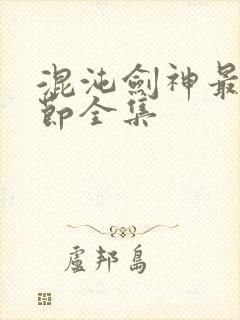 混沌劍神最
節全集
盧邦島